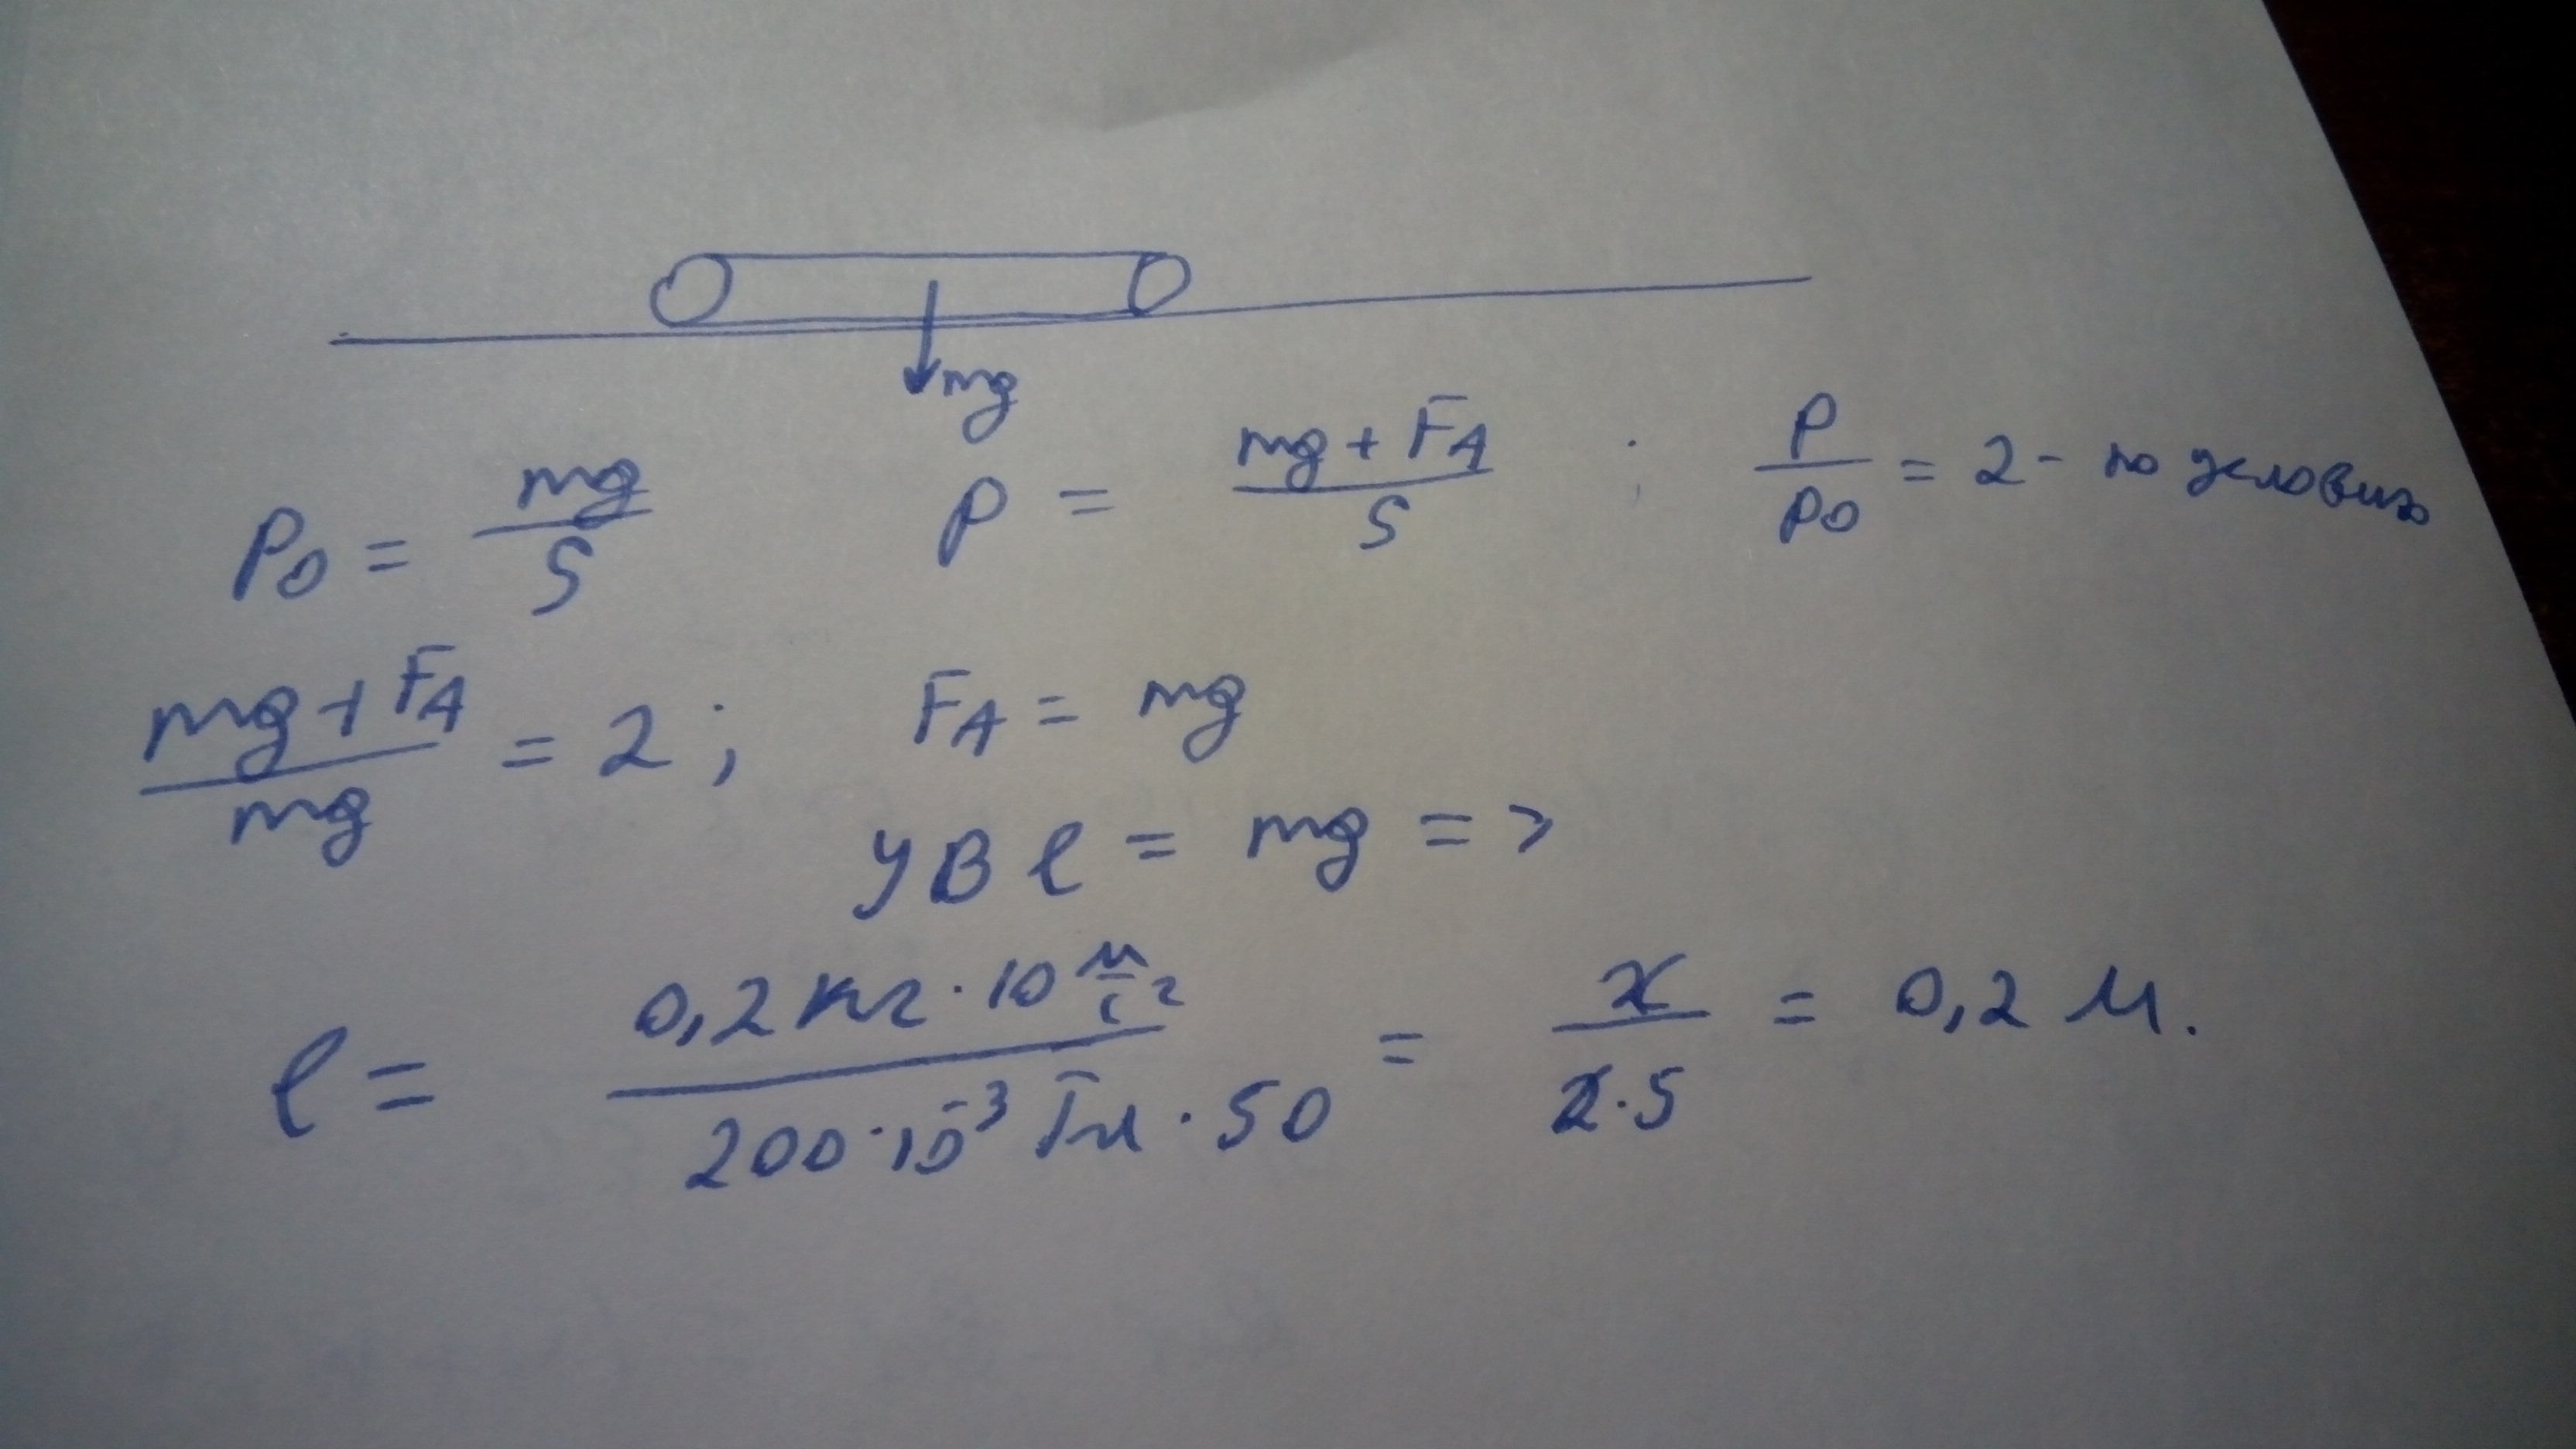 mg
P₀ = mg/S P = (mg + FA)/S ; P/P₀ = 2 - по условию
(mg + FA)/mg = 2 ; FA = mg
УBℓ = mg =>
ℓ = (0,2 кг · 10 м/с²)/(200 · 10⁻³ Тл · 50) = 2/(2 · 5) = 0,2 м.